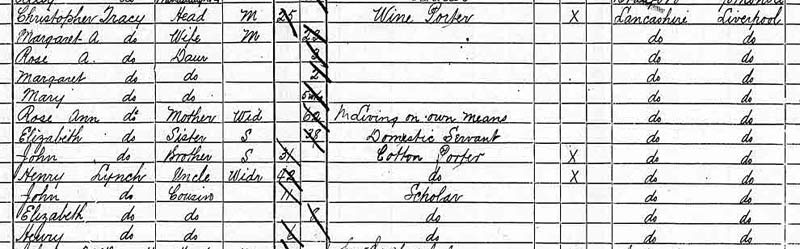 Christopher Tracy Head M 25 Wine Porter X Lancashire Liverpool
Margaret A. do Wife M 23 do do
Rose A. do Daur 3 do do
Margaret do do 2 do do
Mary do do do do
Rose Ann do Mother Wid 60 Living on own means do do
Elizabeth do Sister S 28 Domestic Servant do do
John do Brother S 31 Cotton Porter X do do
Henry Lynch Uncle Widr 42 do X do do
John do Cousin 11 Scholar do do
Elizabeth do do do do do
Henry do do do do do